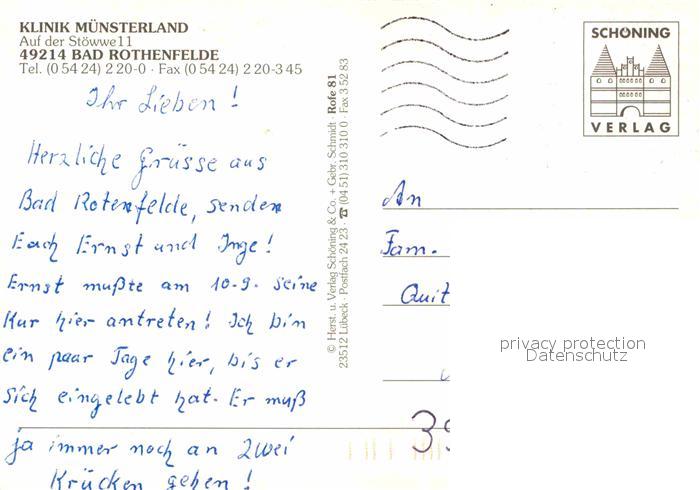 KLINIK MÜNSTERLAND
Auf der Stöwwe 11
49214 BAD ROTHENFELDE
Tel. (0 54 24) 2 20-0 · Fax (0 54 24) 2 20-3 45
Ihr Lieben!
Herzliche Grüsse aus
Bad Rotenfelde, senden
Euch Ernst und Inge!
Ernst mußte am 10.9. seine
Kur hier antreten! Ich bin
ein paar Tage hier, bis er
sich eingelebt hat. Er muß
ja immer noch an zwei
Krücken gehen!
© Herst. u. Verlag Schöning & Co. + Gebr. Schmidt · Rofe 81
23512 Lübeck · Postfach 24 23 · ☎ (04 51) 310 310 0 · Fax 3 52 83
SCHÖNING
VERLAG
An
Fam.
Quit
privacy protection
Datenschutz